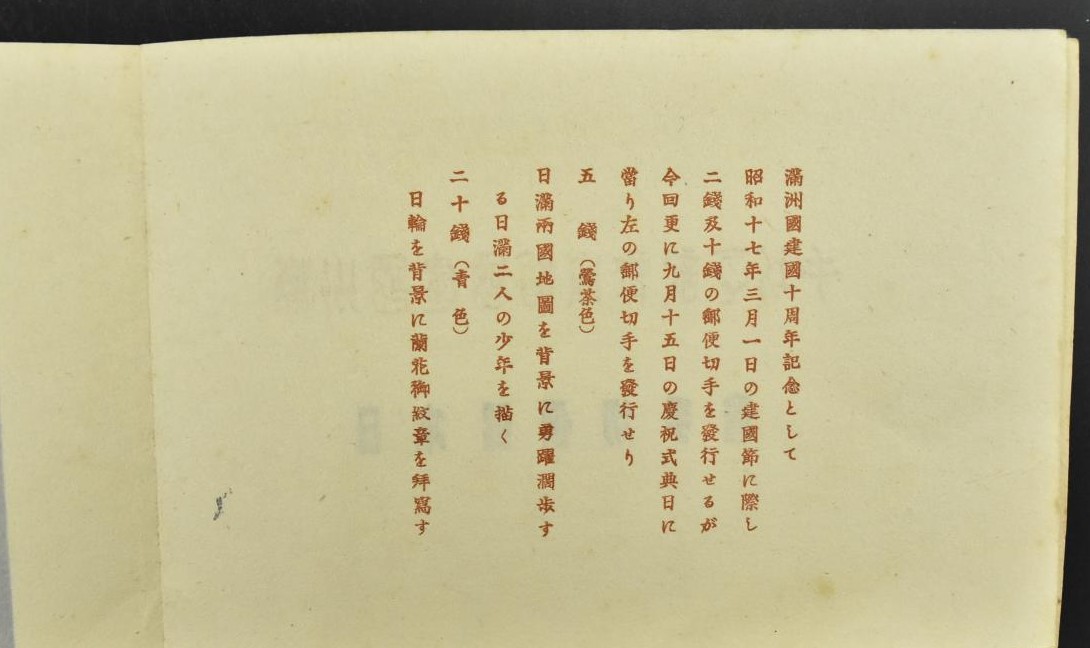 滿洲國建國十周年記念として
昭和十七年三月一日の建國節に際し
二錢及十錢の郵便切手を發行せるが
今回更に九月十五日の慶祝式典日に
當り左の郵便切手を發行せり
五　錢（鶯茶色）
日滿兩國地圖を背景に勇躍濶歩す
る日滿二人の少年を描く
二十錢（青　色）
日輪を背景に蘭花御紋章を拜寫す